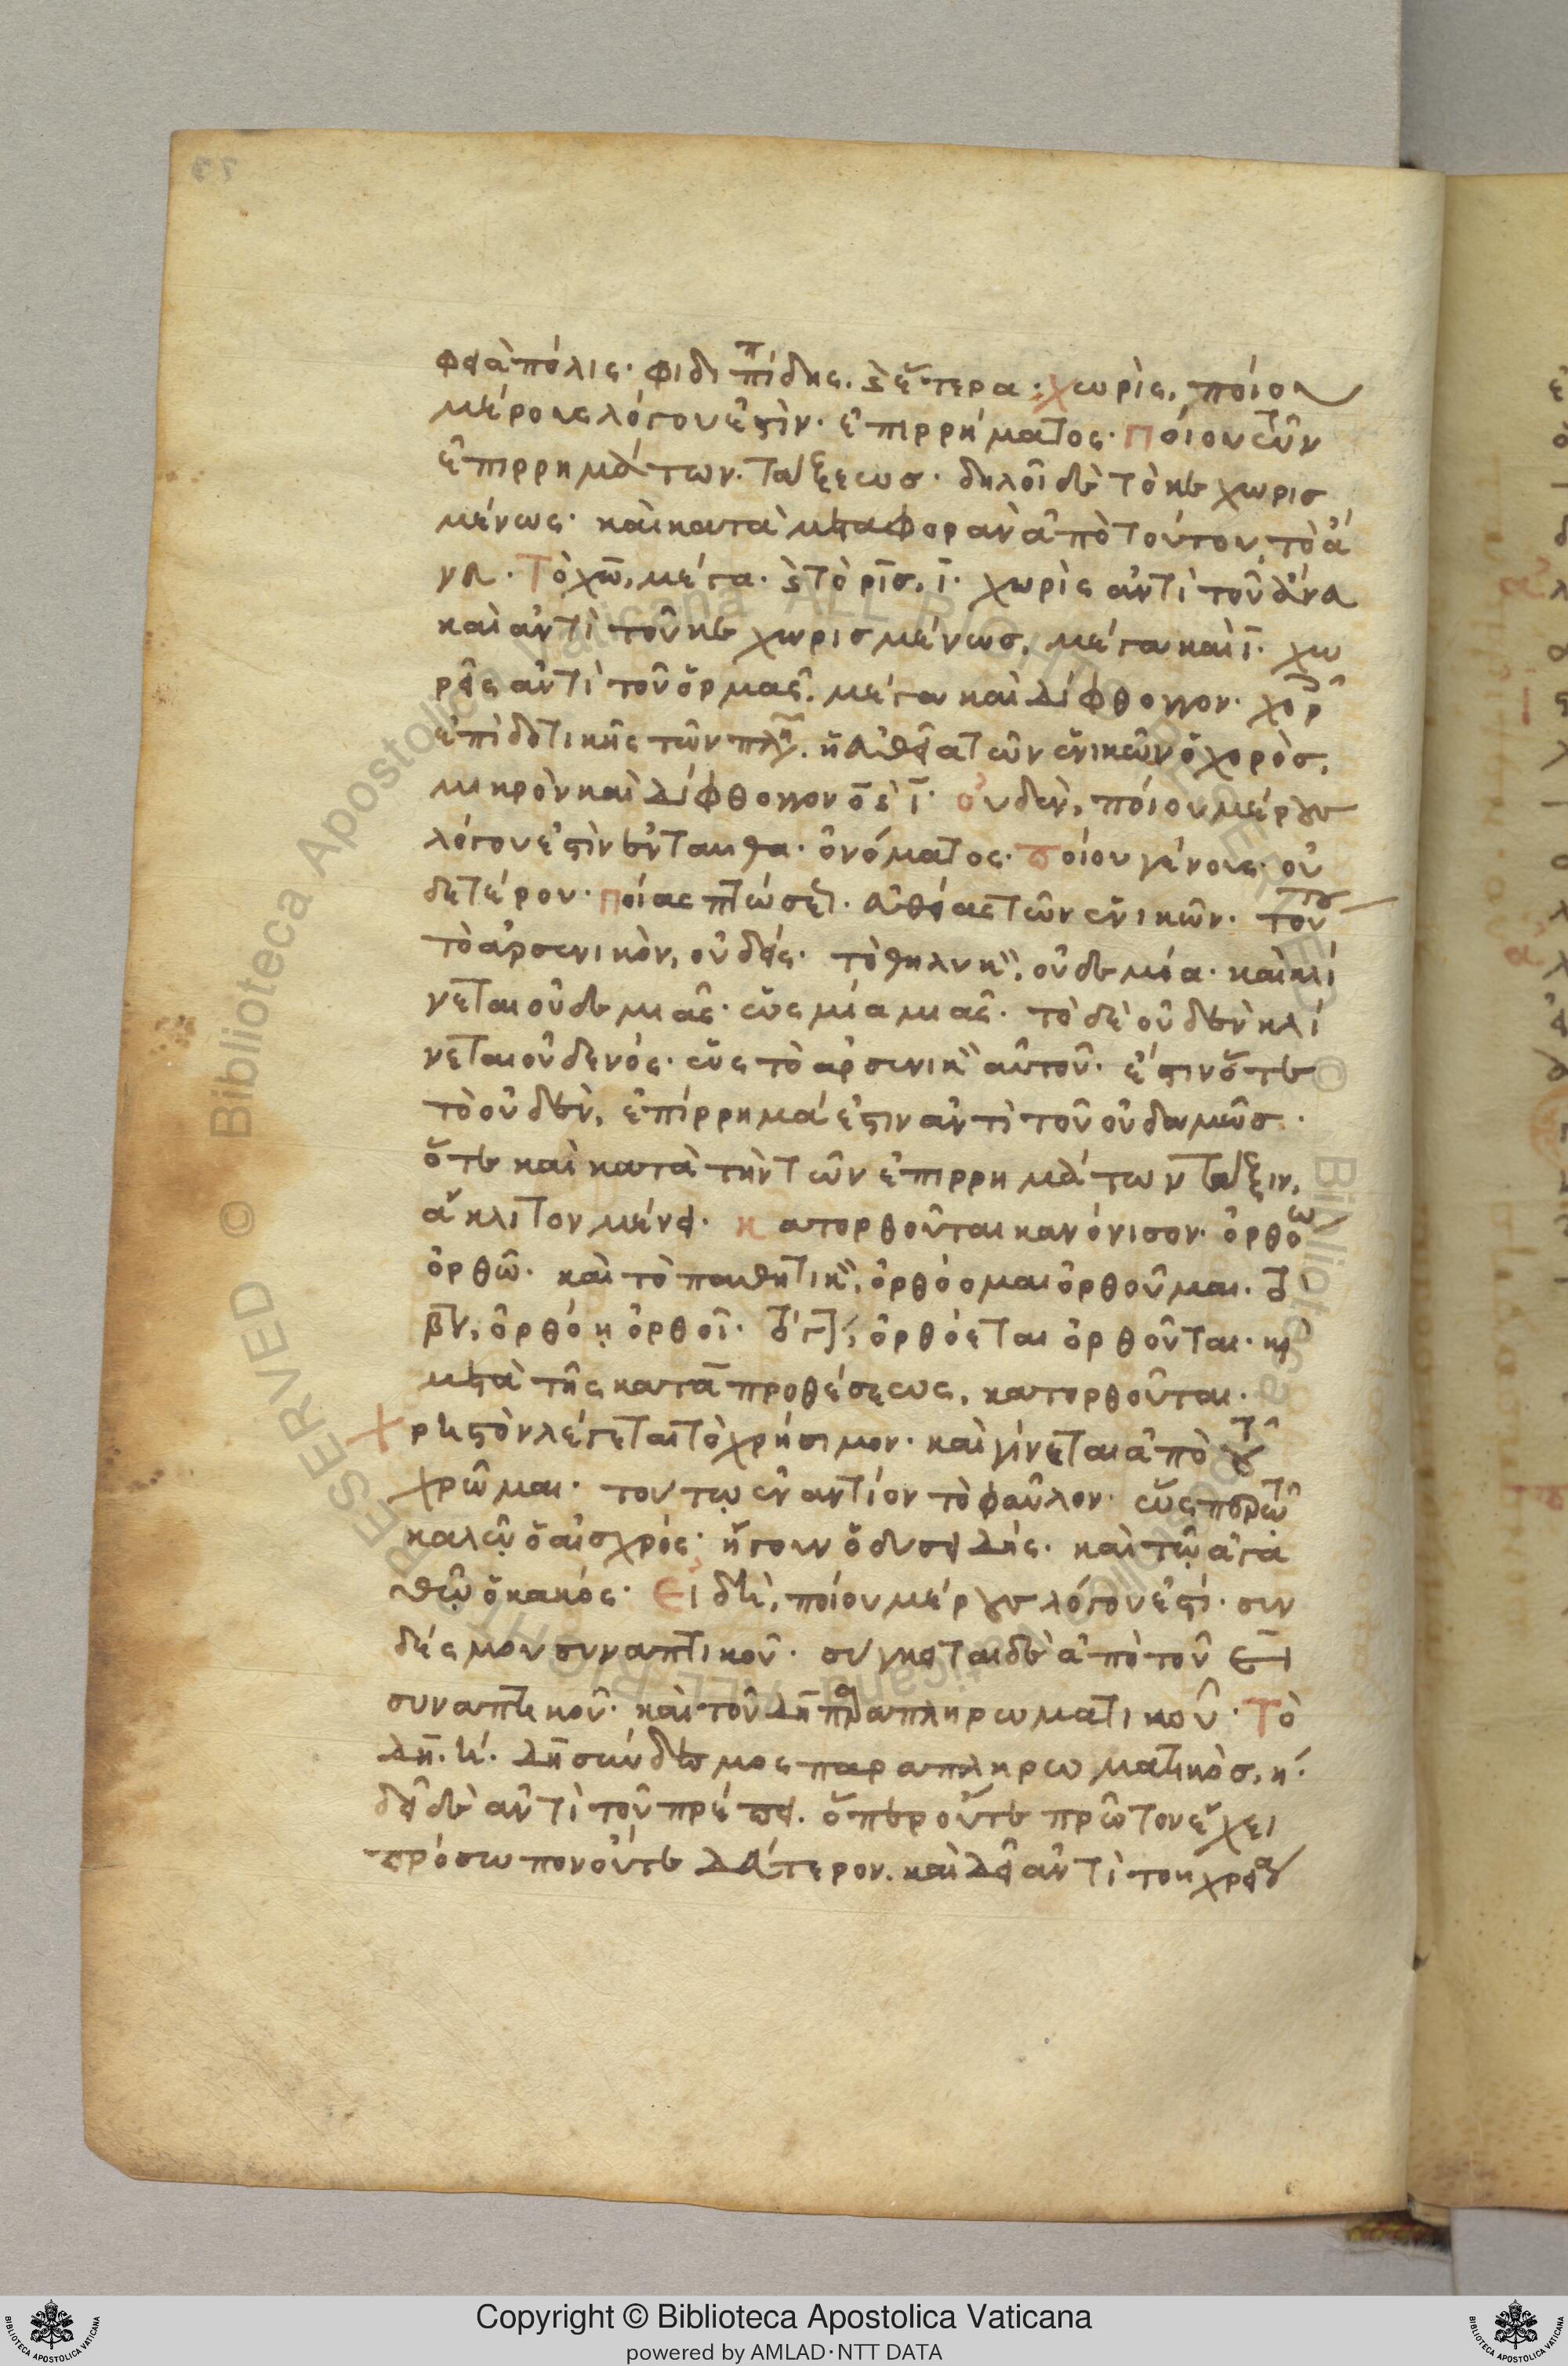 φεὰ πόλις· φιδιππίδης. καὶ ἕτερα· χωρὶς, ποίου
μέρους λόγου ἐστὶν· ἐπιρρήματος· ποίου οὖν
ἐπιρρημάτων. τάξεως· δηλοῖ δὲ τὸ κε χωρισ
μένως· καὶ κατὰ μεταφορὰν ἀπὸ τούτου, τὸ ἄ
νευ· Τὸ χω, μέγα· καὶ τὸ ρις, ι· χωρὶς ἀντὶ τοῦ ἄνευ
καὶ ἀντὶ τοῦ κε χωρισμένως, μέγα καὶ ι· χω
ρεῖς ἀντὶ τοῦ ὁρμᾶς. μέγα καὶ δίφθογγον· χοροῖς
μικρὸν καὶ δίφθογγον ο καὶ ι· οὐδὲν, ποίου μέρους
λόγου ἐστὶν ἐνταῦθα· ὀνόματος· ποίου γένους· οὐ
δετέρου· ποίας πτώσεως· εὐθείας τῶν ἑνικῶν· τούτου
τὸ ἀρσενικὸν, οὐδείς· τὸ θηλυκὸν, οὐδεμία· καὶ κλί
νεται οὐδεμιᾶς· ὡς μία μιᾶς· τὸ δὲ οὐδὲν κλί
νεται οὐδενός· ὡς τὸ ἀρσενικὸν αὐτοῦ· ἔστιν ὅτε
τὸ οὐδὲν, ἐπίρρημά ἐστιν ἀντὶ τοῦ οὐδαμῶς·
ὅτε καὶ κατὰ τὴν τῶν ἐπιρρημάτων τάξιν,
ἄκλιτον μένει· κατορθοῦται κανόνισον· ὀρθόω
ὀρθῶ· καὶ τὸ παθητικὸν, ὀρθόομαι ὀρθοῦμαι· τὸ
βον, ὀρθόῃ ὀρθοῖ· τὸ γον, ὀρθόεται ὀρθοῦται· καὶ
μετὰ τῆς κατὰ προθέσεως, κατορθοῦται·
χρηστὸν λέγεται τὸ χρήσιμον· καὶ γίνεται ἀπὸ τοῦ
χρῶμαι· τούτῳ ἐναντίον τὸ φαῦλον· ὡς τῷ
καλῷ ὁ αἰσχρός· ἤγουν ὁ δυσειδής· καὶ τῷ ἀγα
θῷ ὁ κακός· Εἰ δὲ, ποίου μέρους λόγου ἐστί· συν
δέσμου συναπτικοῦ· σύγκειται δὲ ἀπὸ τοῦ ει
συναπτικοῦ· καὶ τοῦ δη παραπληρωματικοῦ· Τὸ
δη, η· δὴ σύνδεσμος παραπληρωματικὸς, η·
δεῖ δὲ ἀντὶ τοῦ πρέπει. ὅπερ οὔτε πρῶτον ἔχει
πρόσωπον οὔτε δεύτερον. καὶ δεῖ ἀντὶ τοῦ χρεία